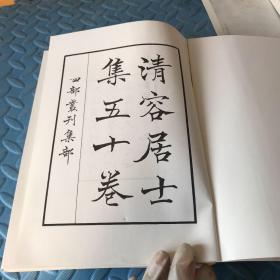 清容居士
集五十卷
四部叢刊集部